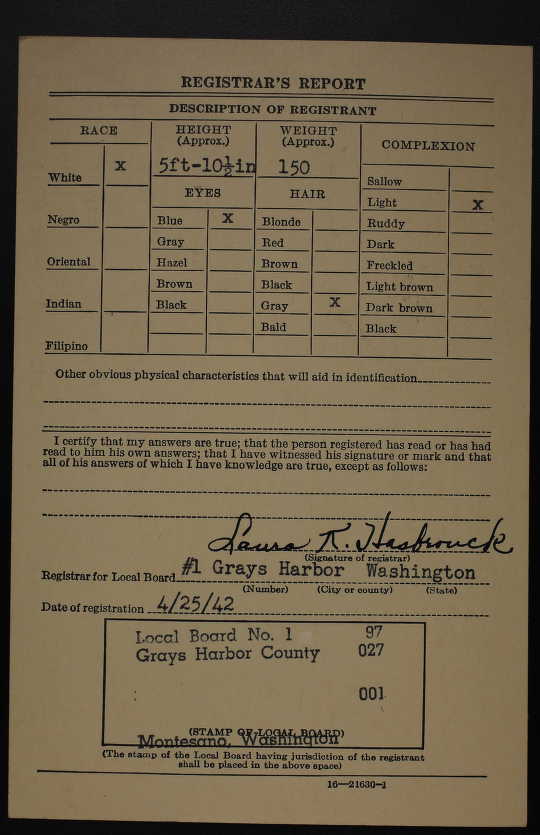 REGISTRAR'S REPORT
DESCRIPTION OF REGISTRANT
RACE HEIGHT (Approx.) WEIGHT (Approx.) COMPLEXION
White X 5ft-10½in 150
EYES HAIR Sallow
Light X
Negro Blue X Blonde Ruddy
Gray Red Dark
Oriental Hazel Brown Freckled
Brown Black Light brown
Indian Black Gray X Dark brown
Bald Black
Filipino
Other obvious physical characteristics that will aid in identification
I certify that my answers are true; that the person registered has read or has had
read to him his own answers; that I have witnessed his signature or mark and that
all of his answers of which I have knowledge are true, except as follows:
Laura R. Hasbrouck
(Signature of registrar)
Registrar for Local Board #1 Grays Harbor Washington
(Number) (City or county) (State)
Date of registration 4/25/42
Local Board No. 1 97
Grays Harbor County 027
001
(STAMP OF LOCAL BOARD)
Montesano, Washington
(The stamp of the Local Board having jurisdiction of the registrant
shall be placed in the above space)
16—21630-1